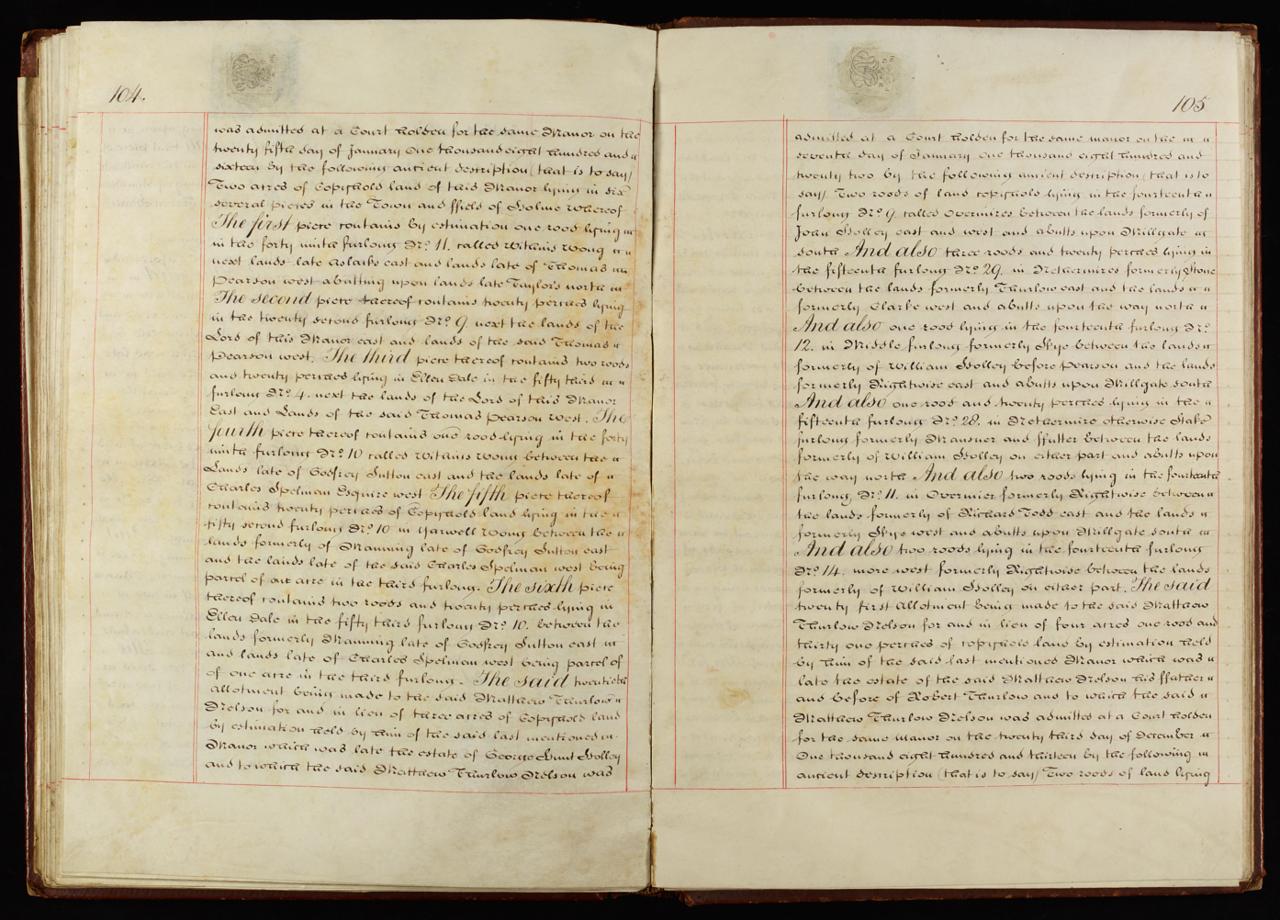 104.
was admitted at a Court holden for the same Manor on the
twenty fifth day of January One thousand eight hundred and
sixteen by the following ancient description (that is to say)
Two acres of Copyhold land of this Manor lying in six
several pieces in the Town and ffield of Holme whereof
The first piece contains by estimation one rood lying in
in the forty ninth furlong No. 11. called Withins Wong
next lands late Aslarke east and lands late of Thomas
Pearson west abutting upon lands late Taylors north
The second piece thereof contains twenty perches lying
in the twenty second furlong No. 9 next the lands of the
Lord of this Manor east and lands of the said Thomas
Pearson west. The third piece thereof contains two roods
and twenty perches lying in Ellen Dale in the fifty third
furlong No. 4. next the lands of the Lord of this Manor
East and Lands of the said Thomas Pearson West. The
fourth piece thereof contains one rood lying in the forty
ninth furlong No. 10 called Withins Wong between the
Lands late of Godfrey Sutton east and the lands late of
Charles Spelman Esquire west The fifth piece thereof
contains twenty perches of Copyhold land lying in the
fifty second furlong No. 10 in Yarwell Wong between the
lands formerly of Manning late of Godfrey Sutton east
and the lands late of the said Charles Spelman west being
parcel of an acre in the third furlong. The sixth piece
thereof contains two roods and twenty perches lying in
Ellen Dale in the fifty third furlong No. 10. between the
lands formerly Manning late of Godfrey Sutton east
and lands late of Charles Spelman west being parcel of
of one acre in the third furlong. The said twentieth
allotment being made to the said Matthew Thurlow
Nelson for and in lieu of three acres of Copyhold land
by estimation held by him of the said last mentioned
Manor which was late the estate of George Hunt Holley
and to which the said Matthew Thurlow Nelson was
105
admitted at a Court holden for the same manor on the
seventh day of January One thousand eight hundred and
twenty two by the following ancient description (that is to
say) Two roods of land copyhold lying in the fourteenth
furlong No. 9. called Overmires between the lands formerly of
John Holley east and west and abutts upon Millgate
south And also three roods and twenty perches lying in
the fifteenth furlong No. 29. in Nethermires formerly Stone
between the lands formerly Thurlow east and the lands
formerly Clarke west and abutts upon the way north
And also one rood lying in the fourteenth furlong No.
12. in Middle furlong formerly Skye between the lands
formerly of William Holley before Pearson and the lands
formerly Rightwise east and abutts upon Millgate south
And also one rood and twenty perches lying in the
fifteenth furlong No. 28. in Nethermire otherwise Stake
furlong formerly Manser and ffutter between the lands
formerly of William Holley on either part and abutts upon
the way north And also two roods lying in the fourteenth
furlong No. 11. in Overmier formerly Rightwise between
the lands formerly of Richard Todd east and the lands
formerly Skye west and abutts upon Millgate south
And also two roods lying in the fourteenth furlong
No. 14. more west formerly Rightwise between the lands
formerly of William Holley on either part. The said
twenty first Allotment being made to the said Matthew
Thurlow Nelson for and in lieu of four acres one rood and
thirty one perches of copyhold land by estimation held
by him of the said last mentioned Manor which was
late the estate of the said Matthew Nelson his ffather
and before of Robert Thurlow and to which the said
Matthew Thurlow Nelson was admitted at a Court holden
for the same manor on the twenty third day of December
One thousand eight hundred and thirteen by the following
ancient description (that is to say) Two roods of land lying